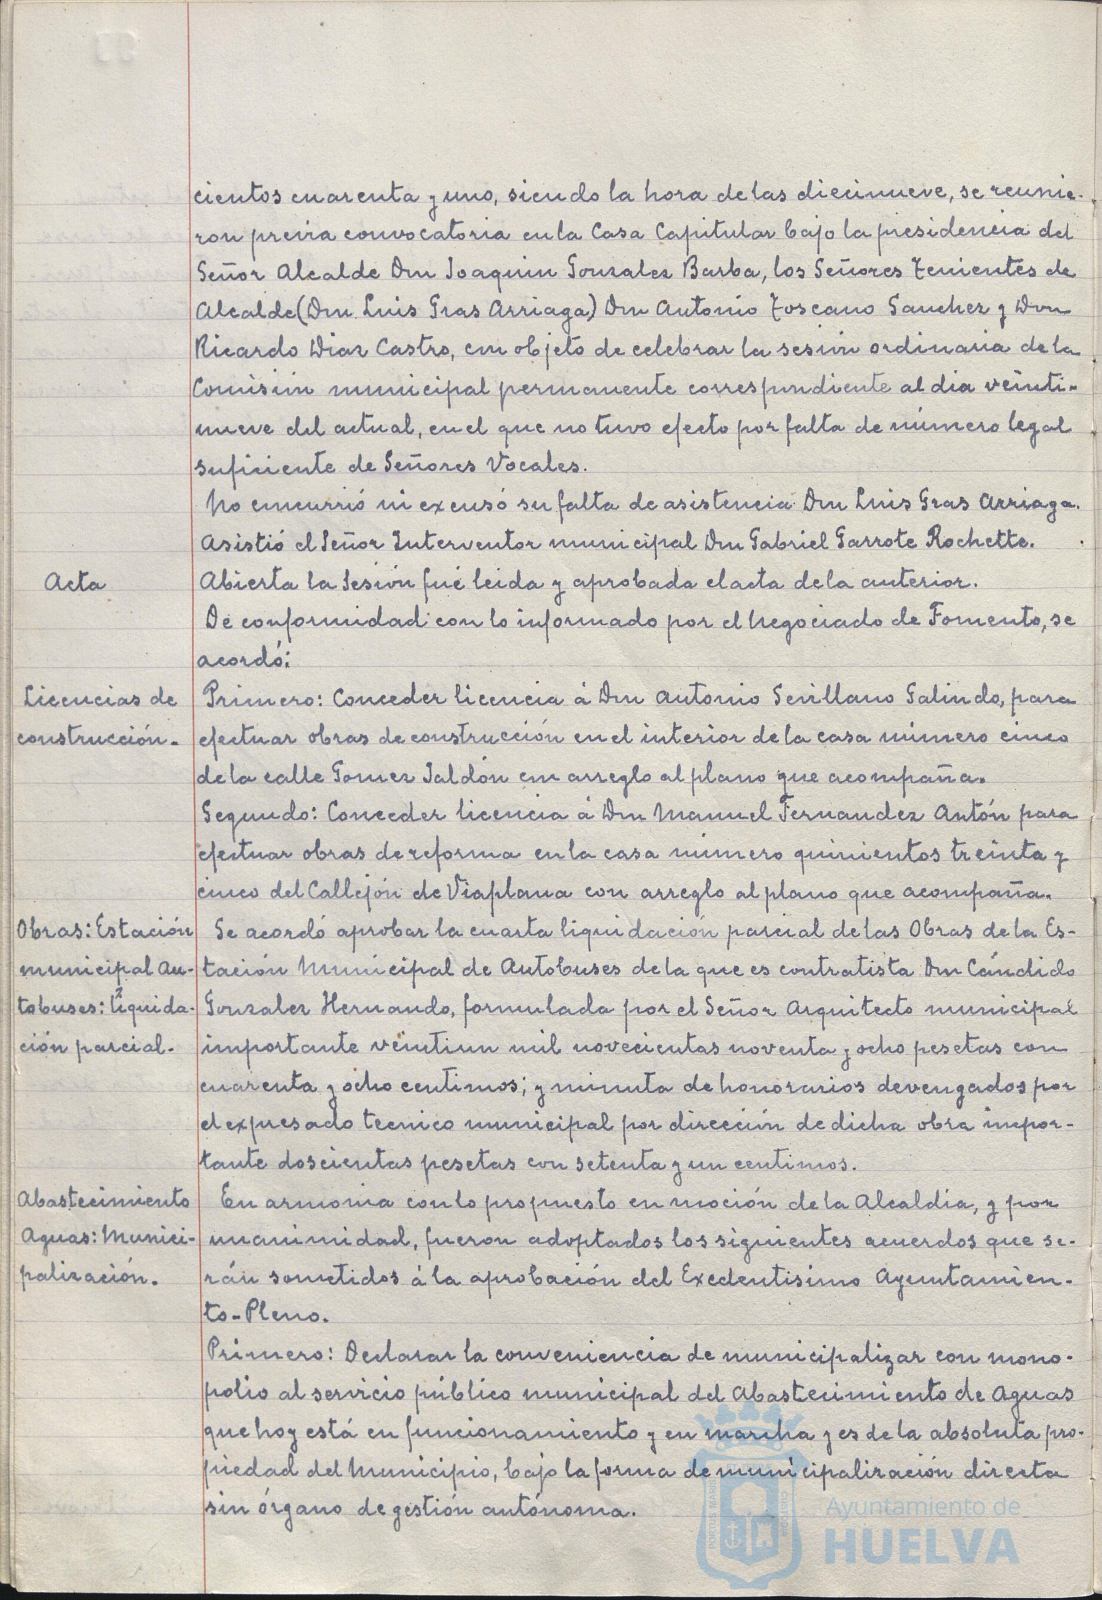 cientos cuarenta y uno, siendo la hora de las diecinueve, se reunie-
ron previa convocatoria en la Casa Capitular bajo la presidencia del
Señor Alcalde Don Joaquin Gonzalez Barba, los Señores Tenientes de
Alcalde (Don Luis Gras Arriaga) Don Antonio Toscano Sanchez y Don
Ricardo Diaz Castro, con objeto de celebrar la sesión ordinaria de la
Comisión municipal permanente correspondiente al dia veinti-
nueve del actual, en el que no tuvo efecto por falta de número legal
suficiente de Señores Vocales.
No concurrió ni excusó su falta de asistencia Don Luis Gras Arriaga.
Asistió el Señor Interventor municipal Don Gabriel Garrote Rochette.
Acta
Abierta la Sesión fué leida y aprobada el acta de la anterior.
De conformidad con lo informado por el Negociado de Fomento, se
acordó:
Licencias de
construcción.-
Primero: Conceder licencia á Don Antonio Sevillano Galindo, para
efectuar obras de construcción en el interior de la casa número cinco
de la calle Gomez Jaldón con arreglo al plano que acompaña.
Segundo: Conceder licencia á Don Manuel Fernandez Antón para
efectuar obras de reforma en la casa número quinientos treinta y
cinco del Callejón de Viaplana con arreglo al plano que acompaña.
Obras: Estación
municipal Au-
tobuses: liquida-
ción parcial.-
Se acordó aprobar la cuarta liquidación parcial de las Obras de la Es-
tación Municipal de Autobuses de la que es contratista Don Cándido
Gonzalez Hernando, formulada por el Señor Arquitecto municipal
importante veintiun mil novecientas noventa y ocho pesetas con
cuarenta y ocho centimos; y minuta de honorarios devengados por
el expresado tecnico municipal por dirección de dicha obra impor-
tante doscientas pesetas con setenta y un centimos.
Abastecimiento
Aguas: Munici-
palización.-
En armonia con lo propuesto en moción de la Alcaldia, y por
unanimidad, fueron adoptados los siguientes acuerdos que se-
rán sometidos á la aprobación del Exedentisimo Ayuntamien-
to-Pleno.
Primero: Declarar la conveniencia de municipalizar con mono-
polio al servicio público municipal del Abastecimiento de Aguas
que hoy está en funcionamiento y en marcha y es de la absoluta pro-
piedad del Municipio, bajo la forma de municipalización directa
sin órgano de gestión autónoma.
Ayuntamiento de
HUELVA